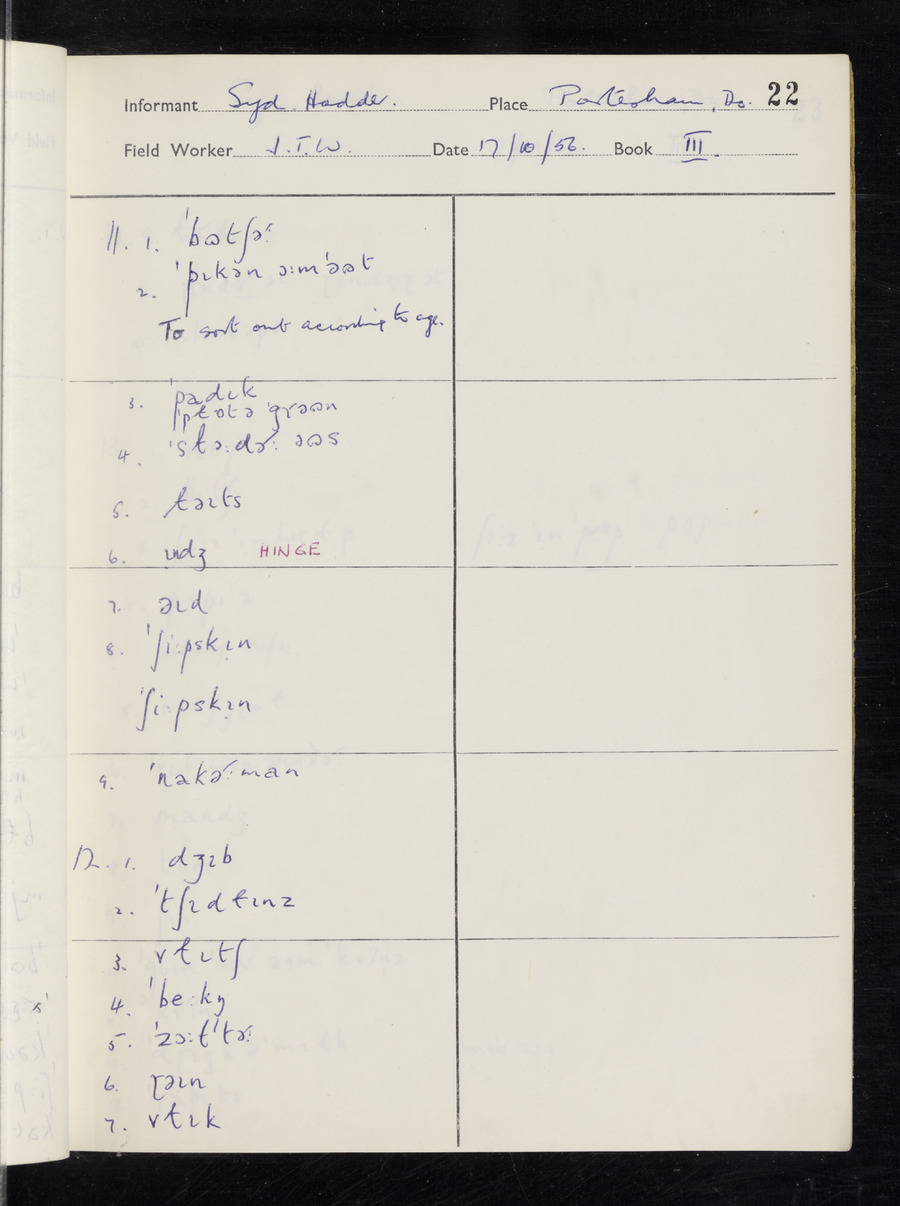 Informant Syd Hodder. Place Portesham, Do. 22
Field Worker J.T.W. Date 17/10/56. Book III
11. 1. ˈbʊtʃəʳ:
2. ˈpɪkən ə:mˈəʊt
To sort out according to age.
3. ˈpadɪk
ˈpɫɒtə ˈgrəʊn
4. ˈstɔ:dəʳ: əʊs
5. ɫəɪts
6. ɪndʒ HINGE
7. əɪd
8. ˈʃi:pskɪn
ˈʃi:pskɪn
9. ˈnakəʳ:man
12. 1. dʒɪb
2. ˈtʃɪdɫɪnz
3. vɫɪtʃ
4. ˈbe:kŋ
5. ˈzɔ:ɫtˈtəʳ:
6. ɽəɪn
7. vɫɪk